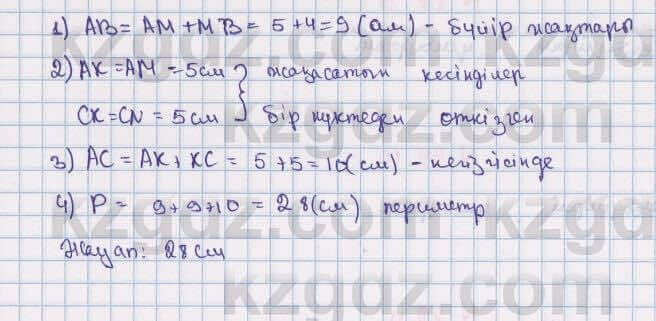 1) AB = AM + MB = 5 + 4 = 9 (см) - бүйір жақтары
2) AK = AM = 5 см } жанасатын кесінділер
CK = CN = 5 см } бір нүктеден өткізген
3) AC = AK + KC = 5 + 5 = 10 (см) - негізгісінде
4) P = 9 + 9 + 10 = 28 (см) периметр
Жауап: 28 см
kzgdz.com